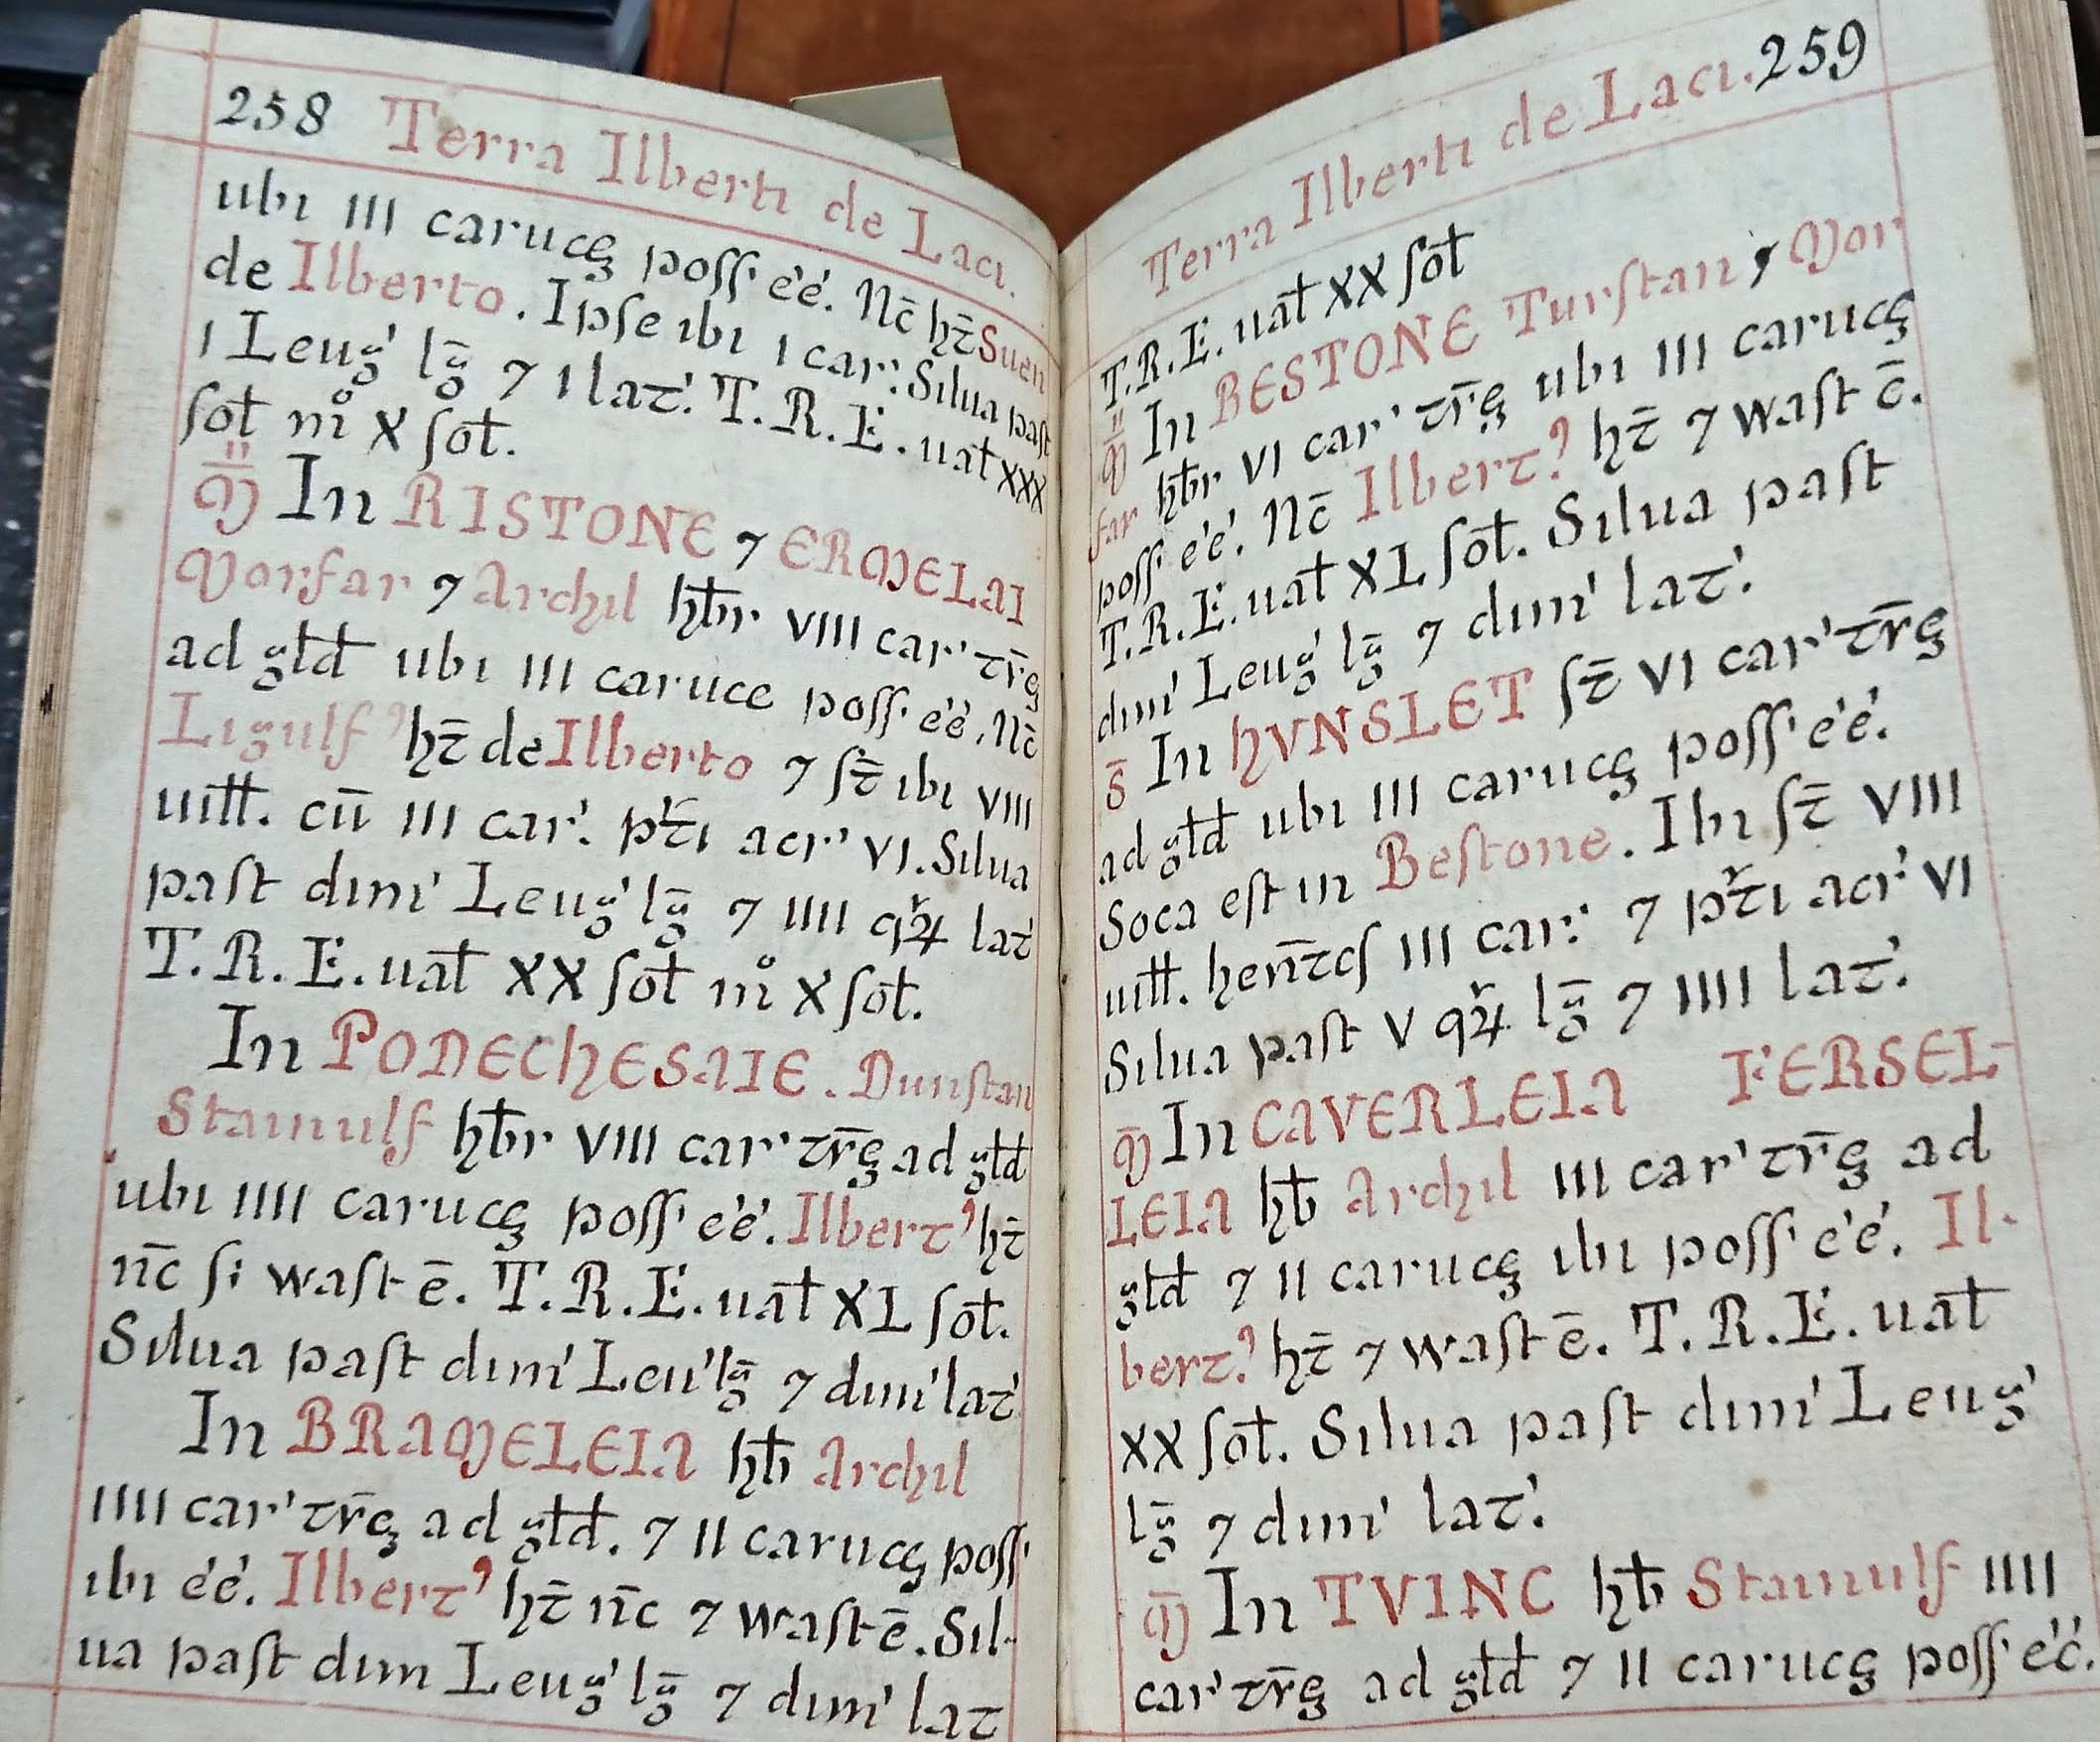 258 Terra Ilberti de Laci.
ubi III carucę poss' e'e'. Nc̄ ht̄ Suen
de Ilberto. Ipse ibi I car'. Silua past
I Leug' lḡ ⁊ I lat'. T.R.E. uał XXX
soł m̊ X soł.
M̄ In RISTONE ⁊ ERMELAI
Morfar ⁊ Archil hƀr VIII car' tr̄ę
ad głd ubi III caruce poss' e'e'. Nc̄
Ligulf' ht̄ de Ilberto ⁊ st̄ ibi VIII
uiłł. cū III car'. pͬti acr' VI. Silua
past dim' Leug' lḡ ⁊ IIII qͬꝝ lat'
T.R.E. uał XX soł m̊ X soł.
In PODECHESAIE. Dunstan
Stainulf hƀr VIII car' tr̄ę ad głd
ubi IIII carucę poss' e'e'. Ilbert' ht̄
nc̄ si wast ē. T.R.E. uał XL soł.
Silua past dim' Leu' lḡ ⁊ dim' lat'
In BRAMELEIA hƀ Archil
IIII car' tr̄ę ad głd. ⁊ II carucę poss'
ibi e'e'. Ilbert' ht̄ nc̄ ⁊ wast ē. Sil-
ua past dim Leug' lḡ ⁊ dim' lat
Terra Ilberti de Laci. 259
T.R.E. uał XX soł
M̄ In BESTONE Turstan ⁊ Mor
far hƀr VI car' tr̄ę ubi III carucę
poss' e'e'. Nc̄ Ilbert' ht̄ ⁊ wast ē.
T.R.E. uał XL soł. Silua past
dim' Leug' lḡ ⁊ dim' lat'.
S̄ In HVNSLET st̄ VI car' tr̄ę
ad głd ubi III carucę poss' e'e'.
Soca est in Bestone. Ibi st̄ VIII
uiłł. hen̄tes III car'. ⁊ pͬti acr' VI
Silua past V qͬꝝ lḡ ⁊ IIII lat'.
M̄ In CAVERLEIA FERSEL-
LEIA hƀ Archil III car' tr̄ę ad
głd ⁊ II carucę ibi poss' e'e'. Il-
bert' ht̄ ⁊ wast ē. T.R.E. uał
XX soł. Silua past dim' Leug'
lḡ ⁊ dim' lat'.
M̄ In TVINC hƀ Stainulf IIII
car' tr̄ę ad głd ⁊ II carucę poss' e'e'.